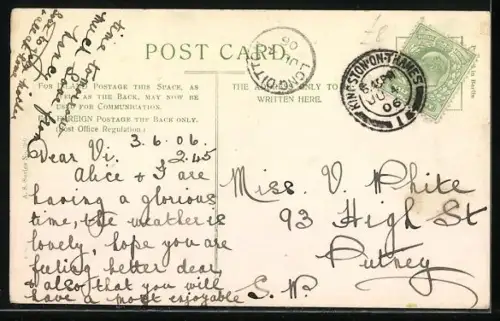 POST CARD
FOR INLAND POSTAGE THIS SPACE, AS
WELL AS THE BACK, MAY NOW BE
USED FOR COMMUNICATION.
FOR FOREIGN POSTAGE THE BACK ONLY.
(Post Office Regulation.)
THE ADDRESS ONLY TO
WRITTEN HERE.
LONG DITTON
JU
06
KINGSTON-ON-THAMES
JU 4
06
£8
Dear Vi. 3.6.06.
2.45
Alice & I are
having a glorious
time, the weather is
lovely, hope you are
feeling better dear,
& also that you will
have a most enjoyable
time
much love
from
Miss V. White
93 High St
Putney
S.W.